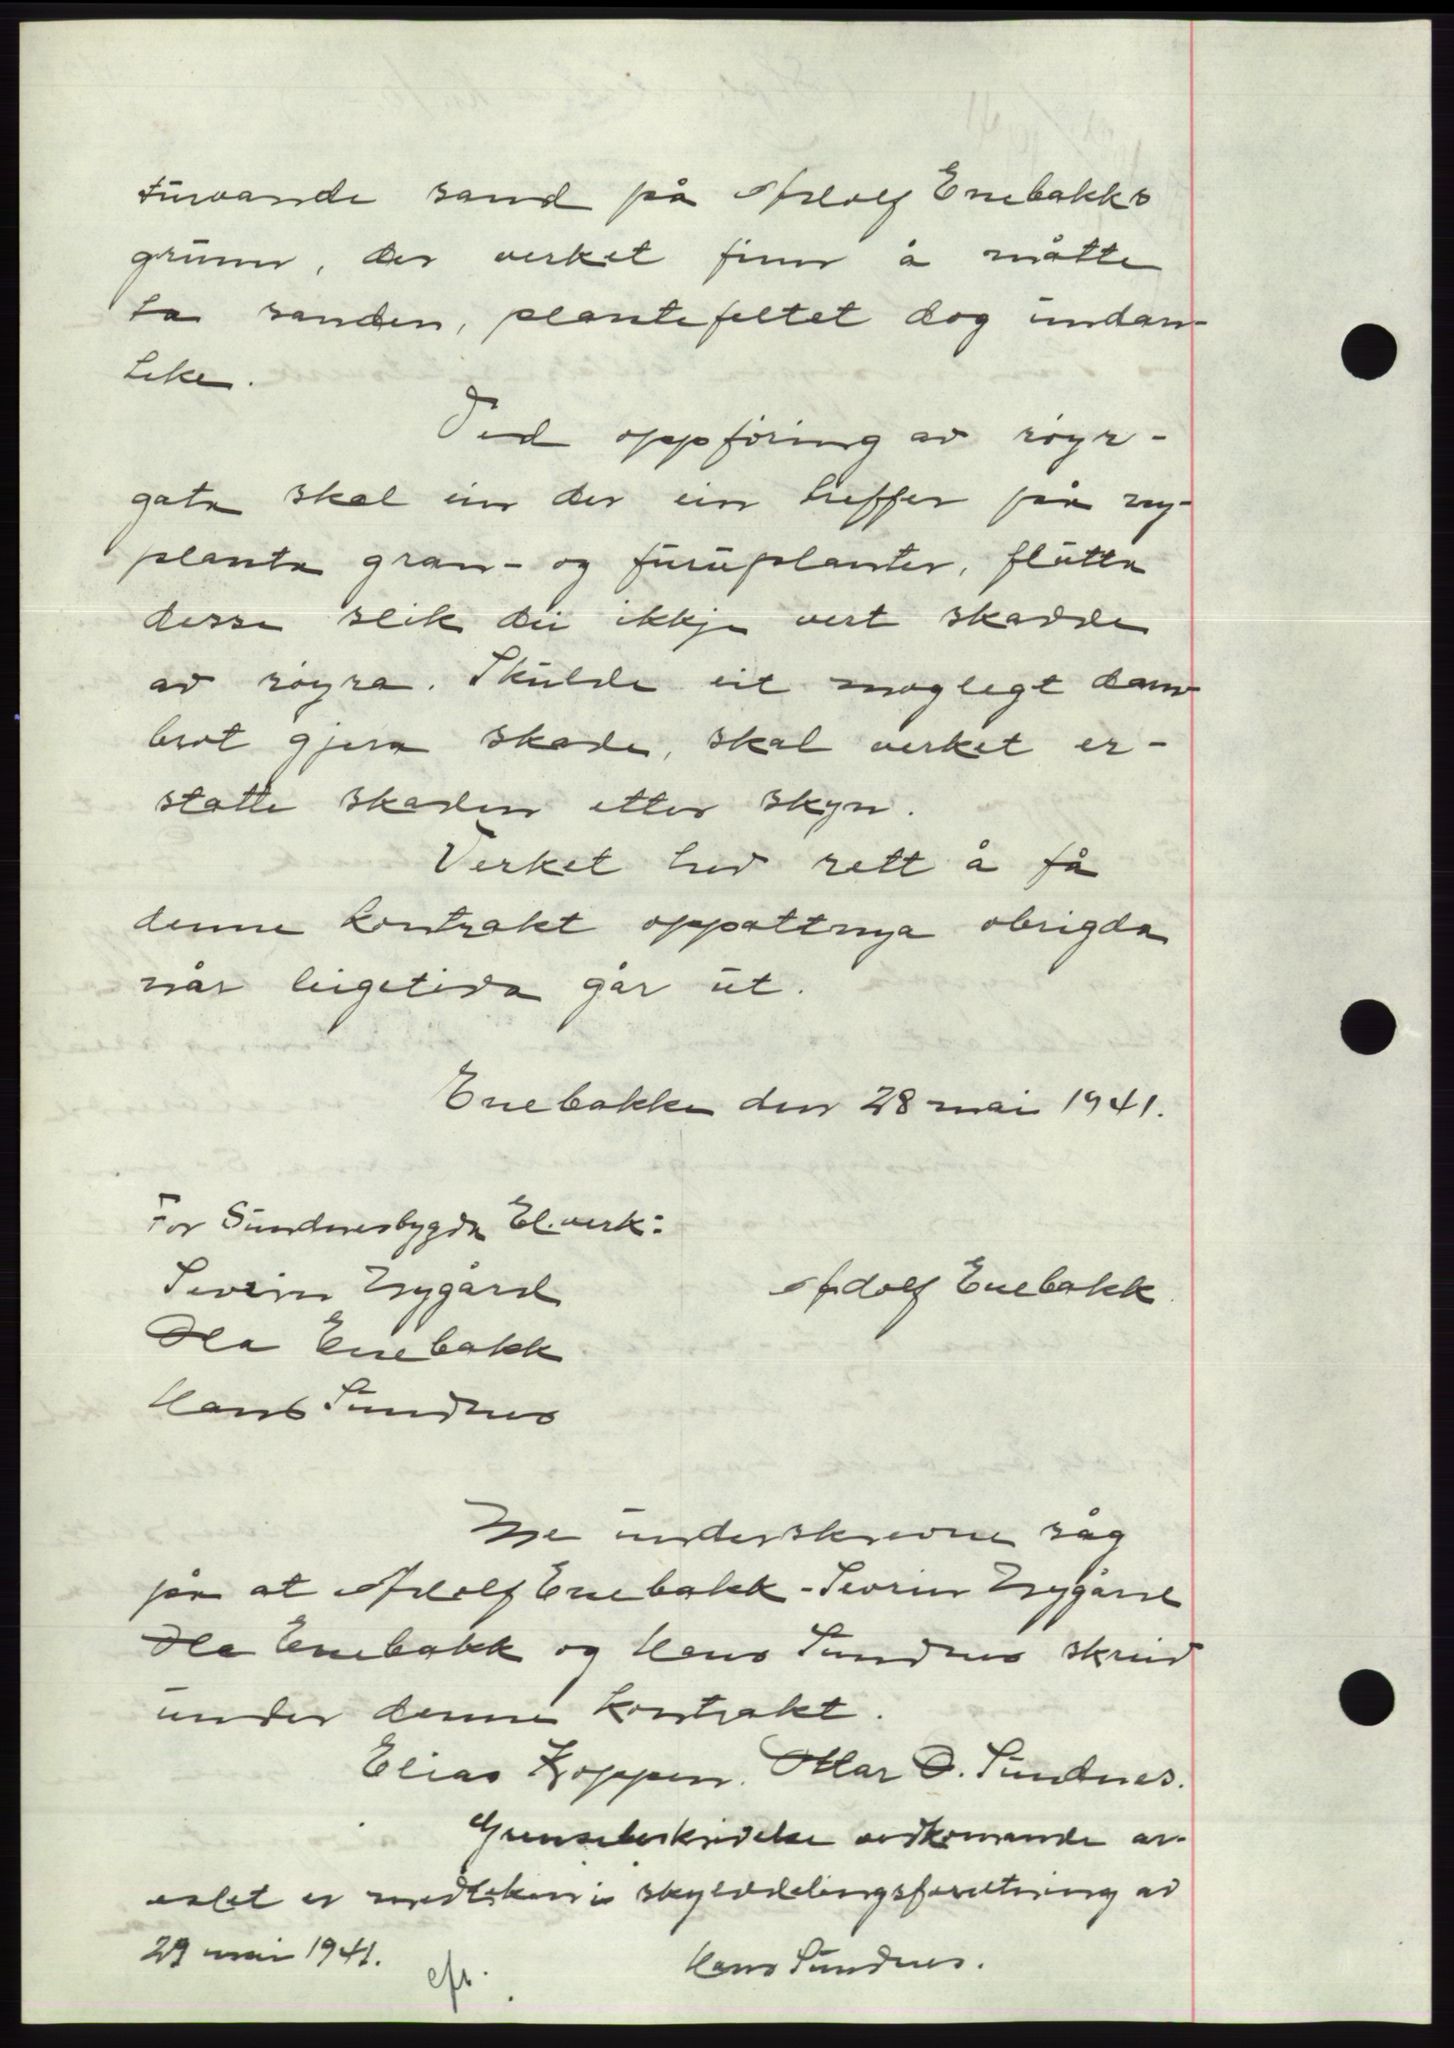 turvande sand på Adolf Enebakks
grunn, der verket finn å måtte
ta sanden, plantefeltet dog undan-
teke.
Ved oppföring av röyr-
gata skal ein der ein treffer på ny-
planta gran- og furuplanter, flutta
desse slik dei ikkje vert skadde
av röyra. Skulde eit moglegt dam-
brot gjera skade, skal verket er-
statte skaden etter skyn.
Verket hev rett å få
denne kontrakt oppattnya obrigda
når leigetida går ut.
Enebakk den 28 mai 1941.
For Sundnesbygda El.verk:
Severin Nygård
Adolf Enebakk
Ola Enebakk
Hans Sundnes
Me underskrevne såg
på at Adolf Enebakk - Severin Nygård
Ola Enebakk og Hans Sundnes skreiv
under denne kontrakt.
Elias Koppen. Ottar O. Sundnes.
Grensebeskrivelse vedkomande ar-
ealet er medteken i skylddelingsforretning av
29 mai 1941.
Hans Sundnes.